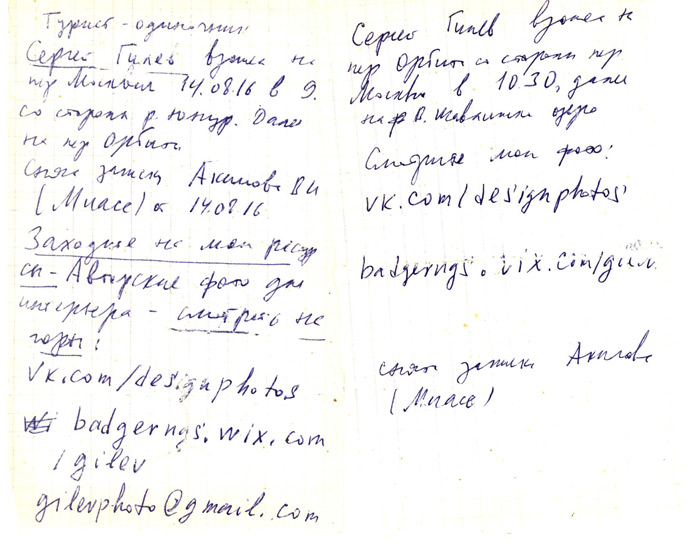 Турист-одиночник
Сергей Гилев взошел на
пер Москвы 14.08.16 в 9.
со стороны р. Юнкур. Далее
на пер Орбита
Снята записка Акилова ВИ
(Миасс) от 14.08.16
Заходите на мои ресур
сы - Авторские фото для
интерьера - смотреть на
горы:
vk.com/designphotos
badgerngs.wix.com
/gilev
gilevphoto@gmail.com
Сергей Гилев взошел на
пер Орбита со стороны пер
Москвы в 10.30, далее
на озеро
Смотрите мои фото:
vk.com/designphotos
badgerngs.wix.com/gilev
снята записка Акилова
(Миасс)